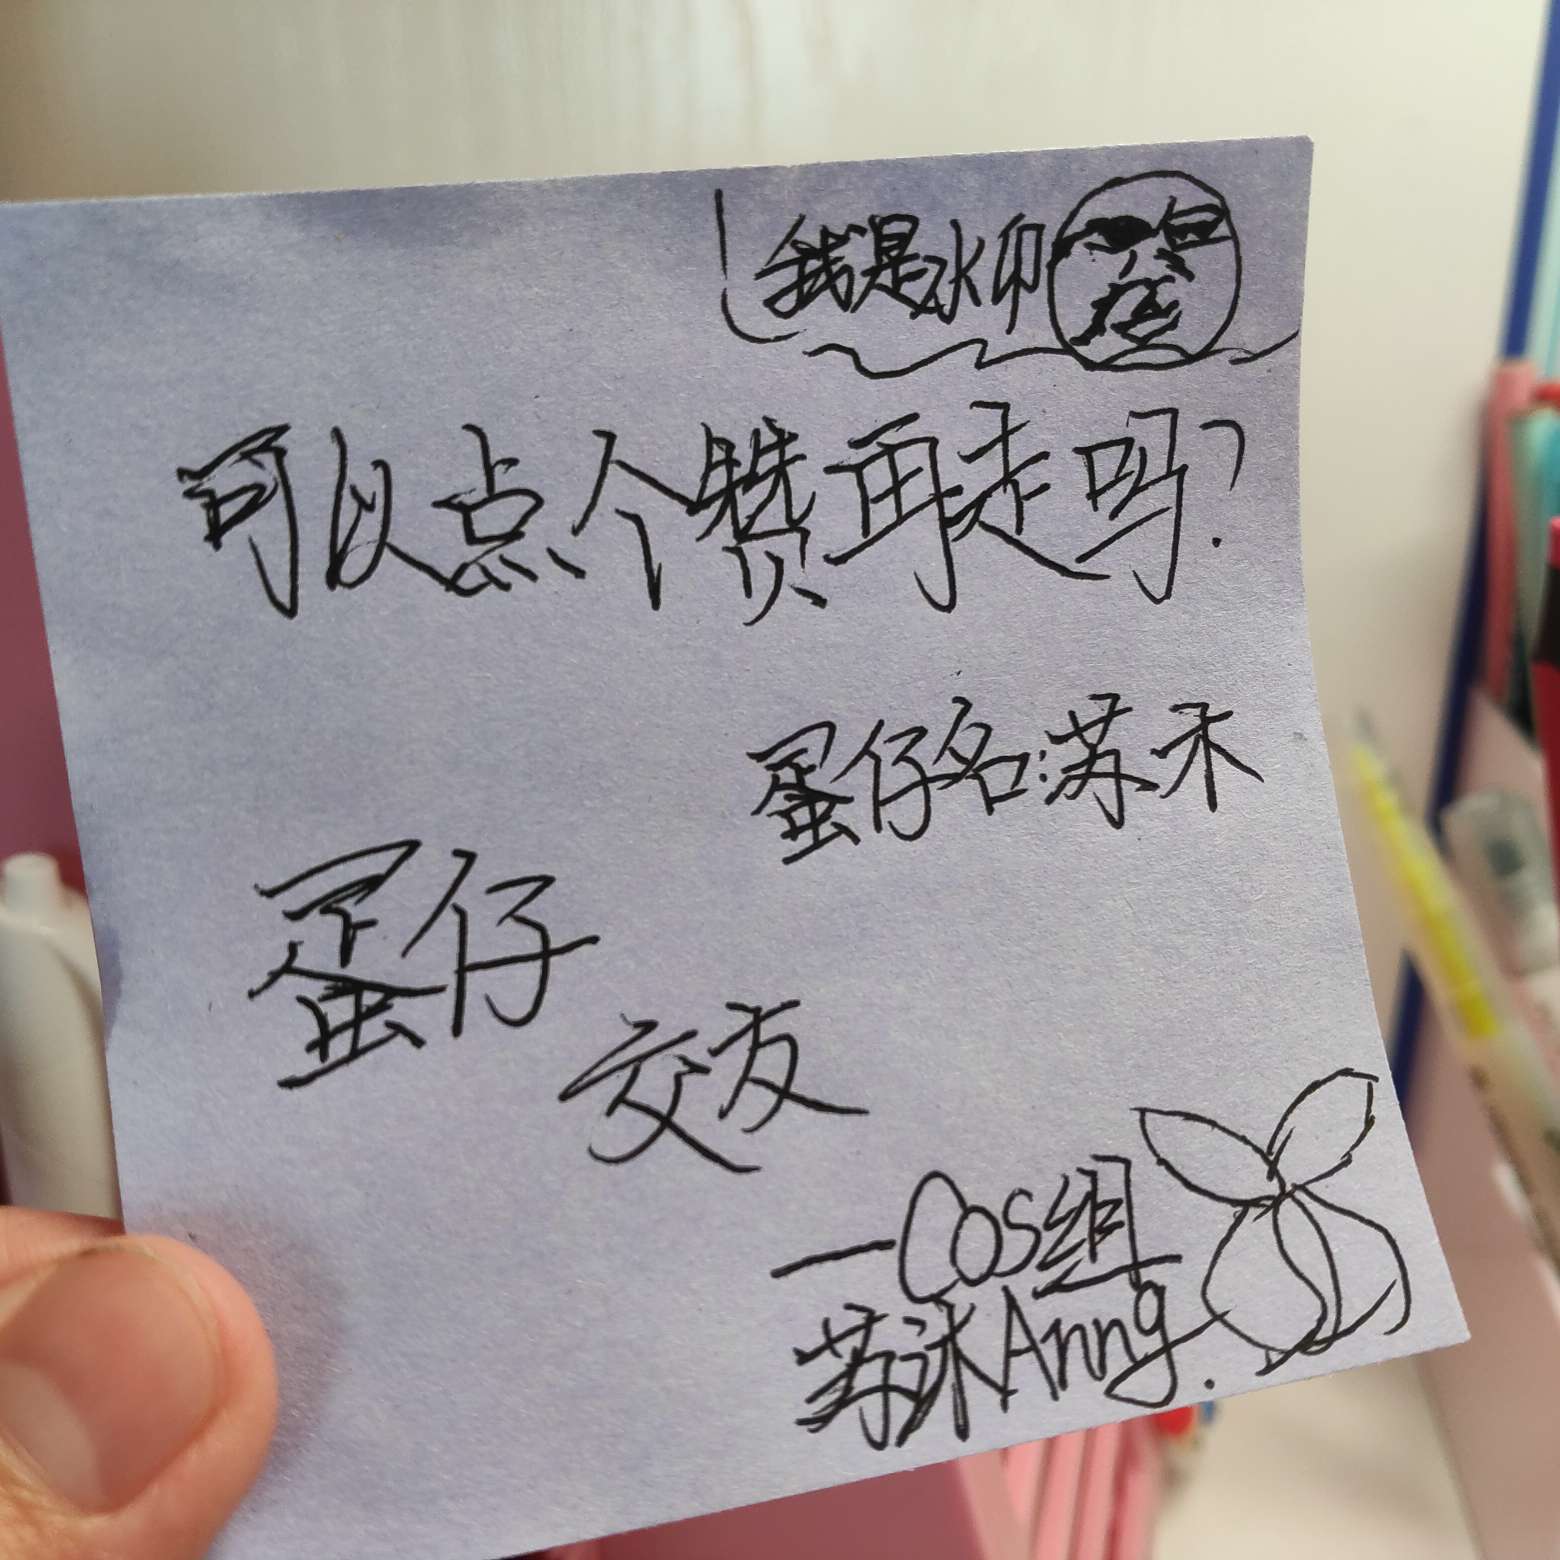 我是水印
可以点个赞再走吗?
蛋仔名:苏禾
蛋仔
交友
—Cos组
苏沐Anng.